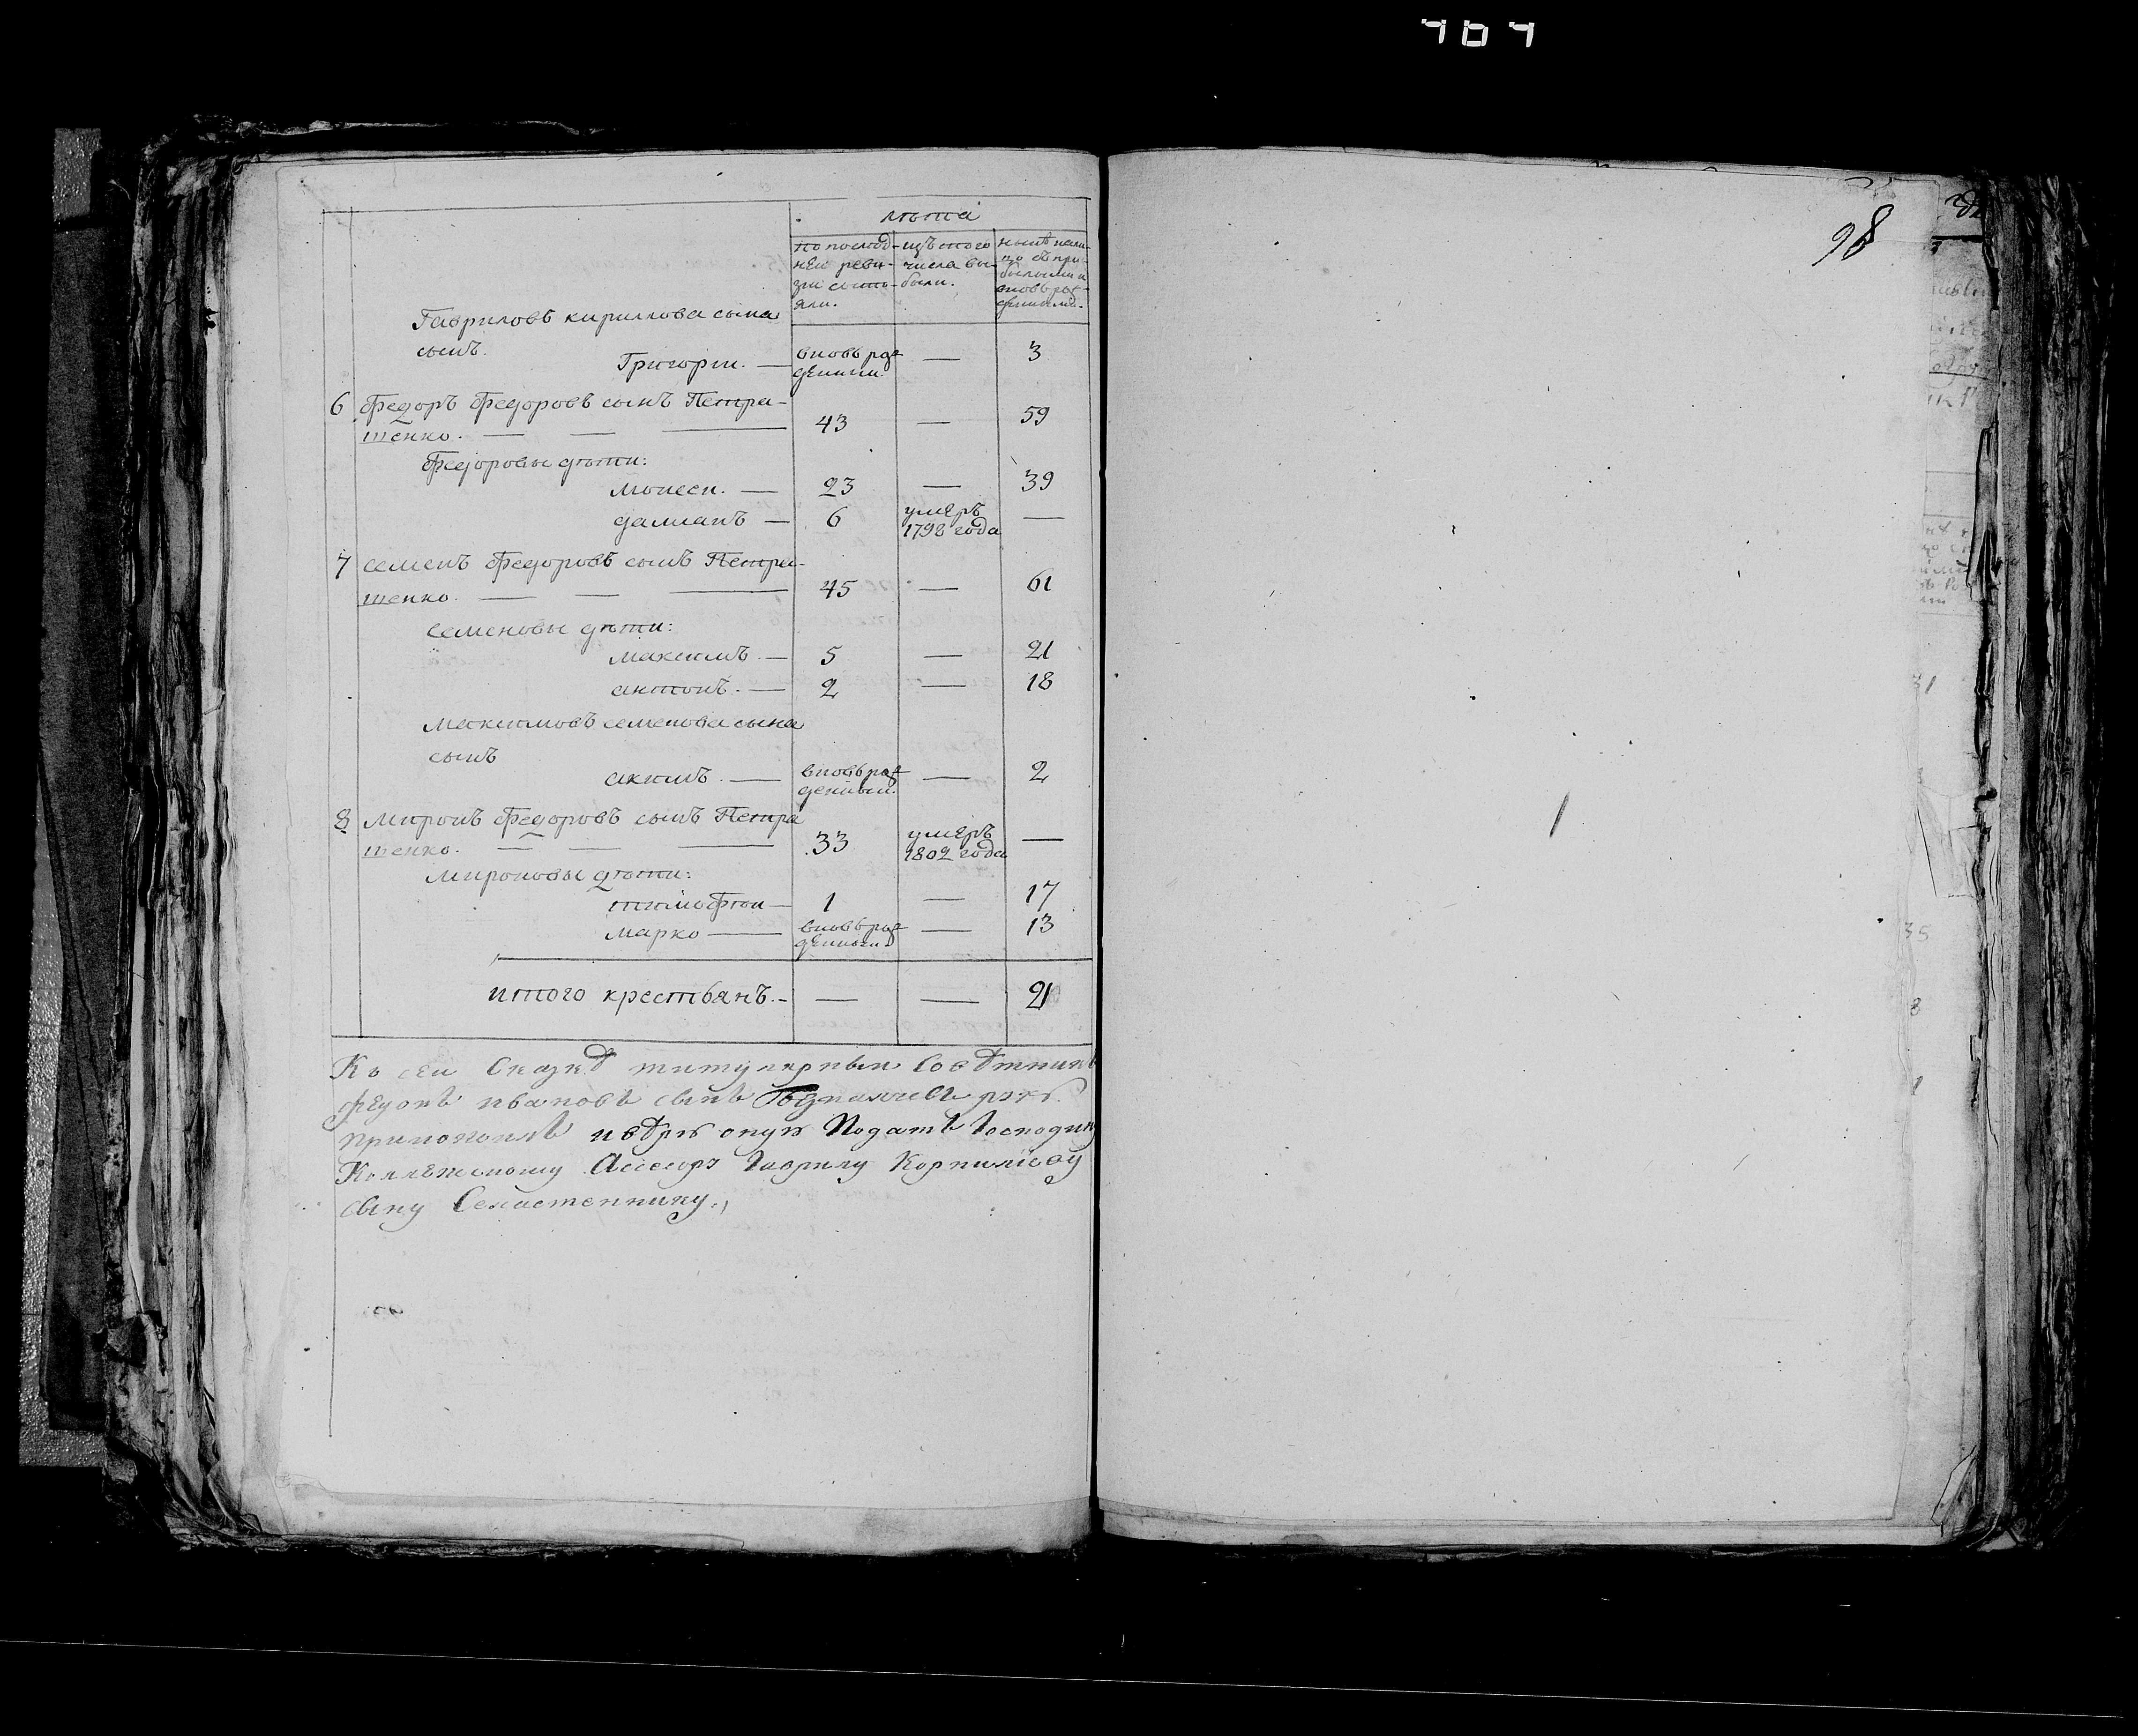 464
98
лѣта
по послѣд- | изъ того | нынѣ нали-
ней реви- | числа вы- | цо съ при-
зии состо- | были. | былыми и
яли. | | вновь рож-
денными.
Гавриловъ кириллова сына
сынъ.
Григорiи. — | вновь рож- денныи. | — | 3
6 | Федоръ Федоровъ сынъ Петра-
шенко. — — — | 43 | — | 59
Федоровы дѣти:
моисеи. — | 23 | — | 39
далианъ — | 6 | умеръ 1798 года | —
7 | семенъ Федоровъ сынъ Петра-
шенко. — — — | 45 | — | 61
семеновы дѣти:
максимъ. — | 5 | — | 21
антонъ. — | 2 | — | 18
максимовъ семенова сына
сынъ
акимъ. — | вновь рож- денныи. | — | 2
8 | миронъ Федоровъ сынъ Петра
шенко. — — — | 33 | умеръ 1802 года | —
мироновы дѣти:
тимофѣи — | 1 | — | 17
марко — | вновь рож- денныи. | — | 13
итого крестьянъ. - | — | — | 21
Къ сеи Сказкѣ титулярныи Совѣтникъ
ивановъ сынъ
приложилъ и вѣрю оную Подать Господину
Коллежскому Асесору Гаврилу Корнилiеву
сыну